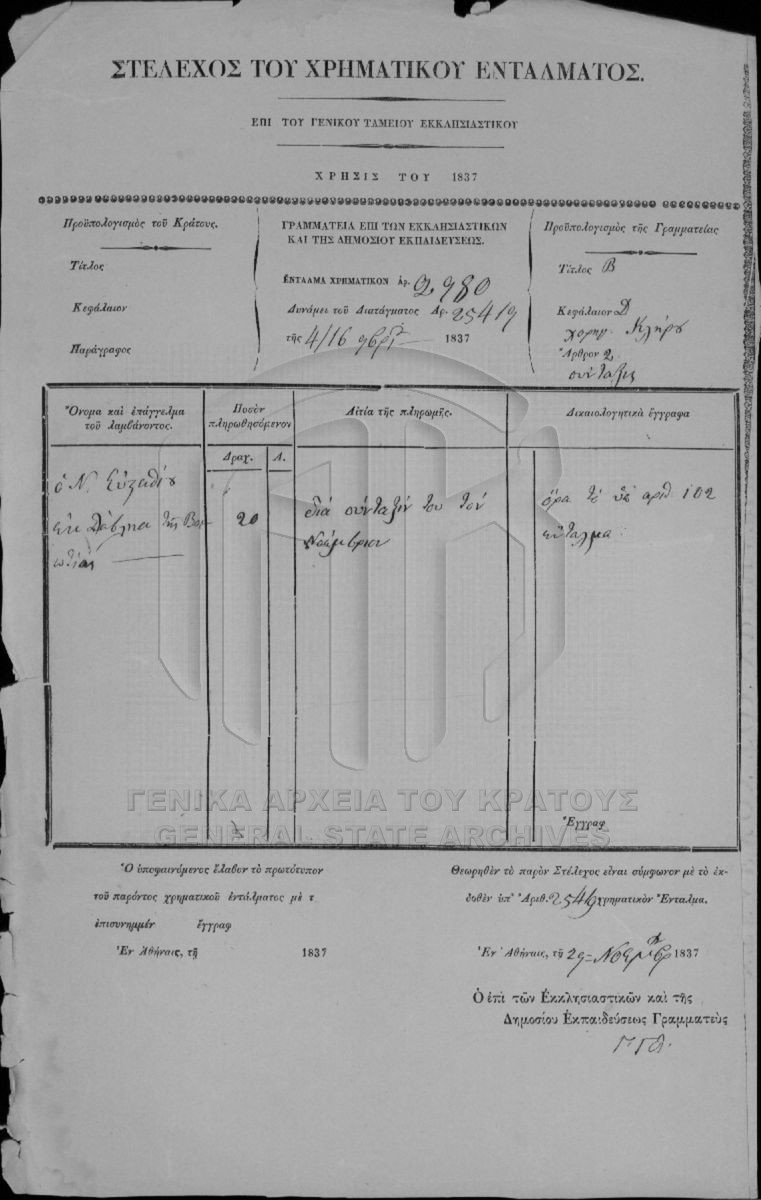 ΣΤΕΛΕΧΟΣ ΤΟΥ ΧΡΗΜΑΤΙΚΟΥ ΕΝΤΑΛΜΑΤΟΣ.
ΕΠΙ ΤΟΥ ΓΕΝΙΚΟΥ ΤΑΜΕΙΟΥ ΕΚΚΛΗΣΙΑΣΤΙΚΟΥ
ΧΡΗΣΙΣ ΤΟΥ 1837
Προϋπολογισμὸς τοῦ Κράτους.
Τίτλος
Κεφάλαιον
Παράγραφος
ΓΡΑΜΜΑΤΕΙΑ ΕΠΙ ΤΩΝ ΕΚΚΛΗΣΙΑΣΤΙΚΩΝ
ΚΑΙ ΤΗΣ ΔΗΜΟΣΙΟΥ ΕΚΠΑΙΔΕΥΣΕΩΣ.
ΕΝΤΑΛΜΑ ΧΡΗΜΑΤΙΚΟΝ ἀρ. 2980
Δυνάμει τοῦ Διατάγματος Ἀρ. 25419
τῆς 4/16 9βρ 1837
Προϋπολογισμὸς τῆς Γραμματείας
Τίτλος Β
Κεφάλαιον Δ
χορηγ. Κλήρου
Ἄρθρον 2
σύνταξις
Ὄνομα καὶ ἐπάγγελμα
τοῦ λαμβάνοντος.
Ποσὸν
πληρωθησόμενον
Δραχ. Λ.
Αἰτία τῆς πληρωμῆς.
Δικαιολογητικὰ ἔγγραφα
ὁ Ν.
ἐκ τῆς Βοι
ωτίας
20
διὰ σύνταξίν του τὸν
Νοέμβριον
ὅρα τὸ ὑπ ἀριθ 102
ἔνταλμα
Ἔγγραφ
ΓΕΝΙΚΑ ΑΡΧΕΙΑ ΤΟΥ ΚΡΑΤΟΥΣ
GENERAL STATE ARCHIVES
Ὁ ὑποφαινόμενος ἔλαβον τὸ πρωτότυπον
τοῦ παρόντος χρηματικοῦ ἐντάλματος μὲ τ
ἐπισυνημμέν ἔγγραφ
Ἐν Ἀθήναις, τῇ 1837
Θεωρηθὲν τὸ παρὸν Στέλεχος εἶναι σύμφωνον μὲ τὸ ἐκ-
δοθὲν ὑπ' Ἀριθ. 25419 χρηματικὸν Ἔνταλμα.
Ἐν Ἀθήναις, τῇ 29 Νοεμβρ 1837
Ὁ ἐπὶ τῶν Ἐκκλησιαστικῶν καὶ τῆς
Δημοσίου Ἐκπαιδεύσεως Γραμματεὺς